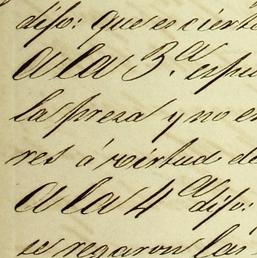 dijo: que es ciert
A la 3.ª espu
la presa y no e
res á virtud de
A la 4ª dijo:
se regaron las